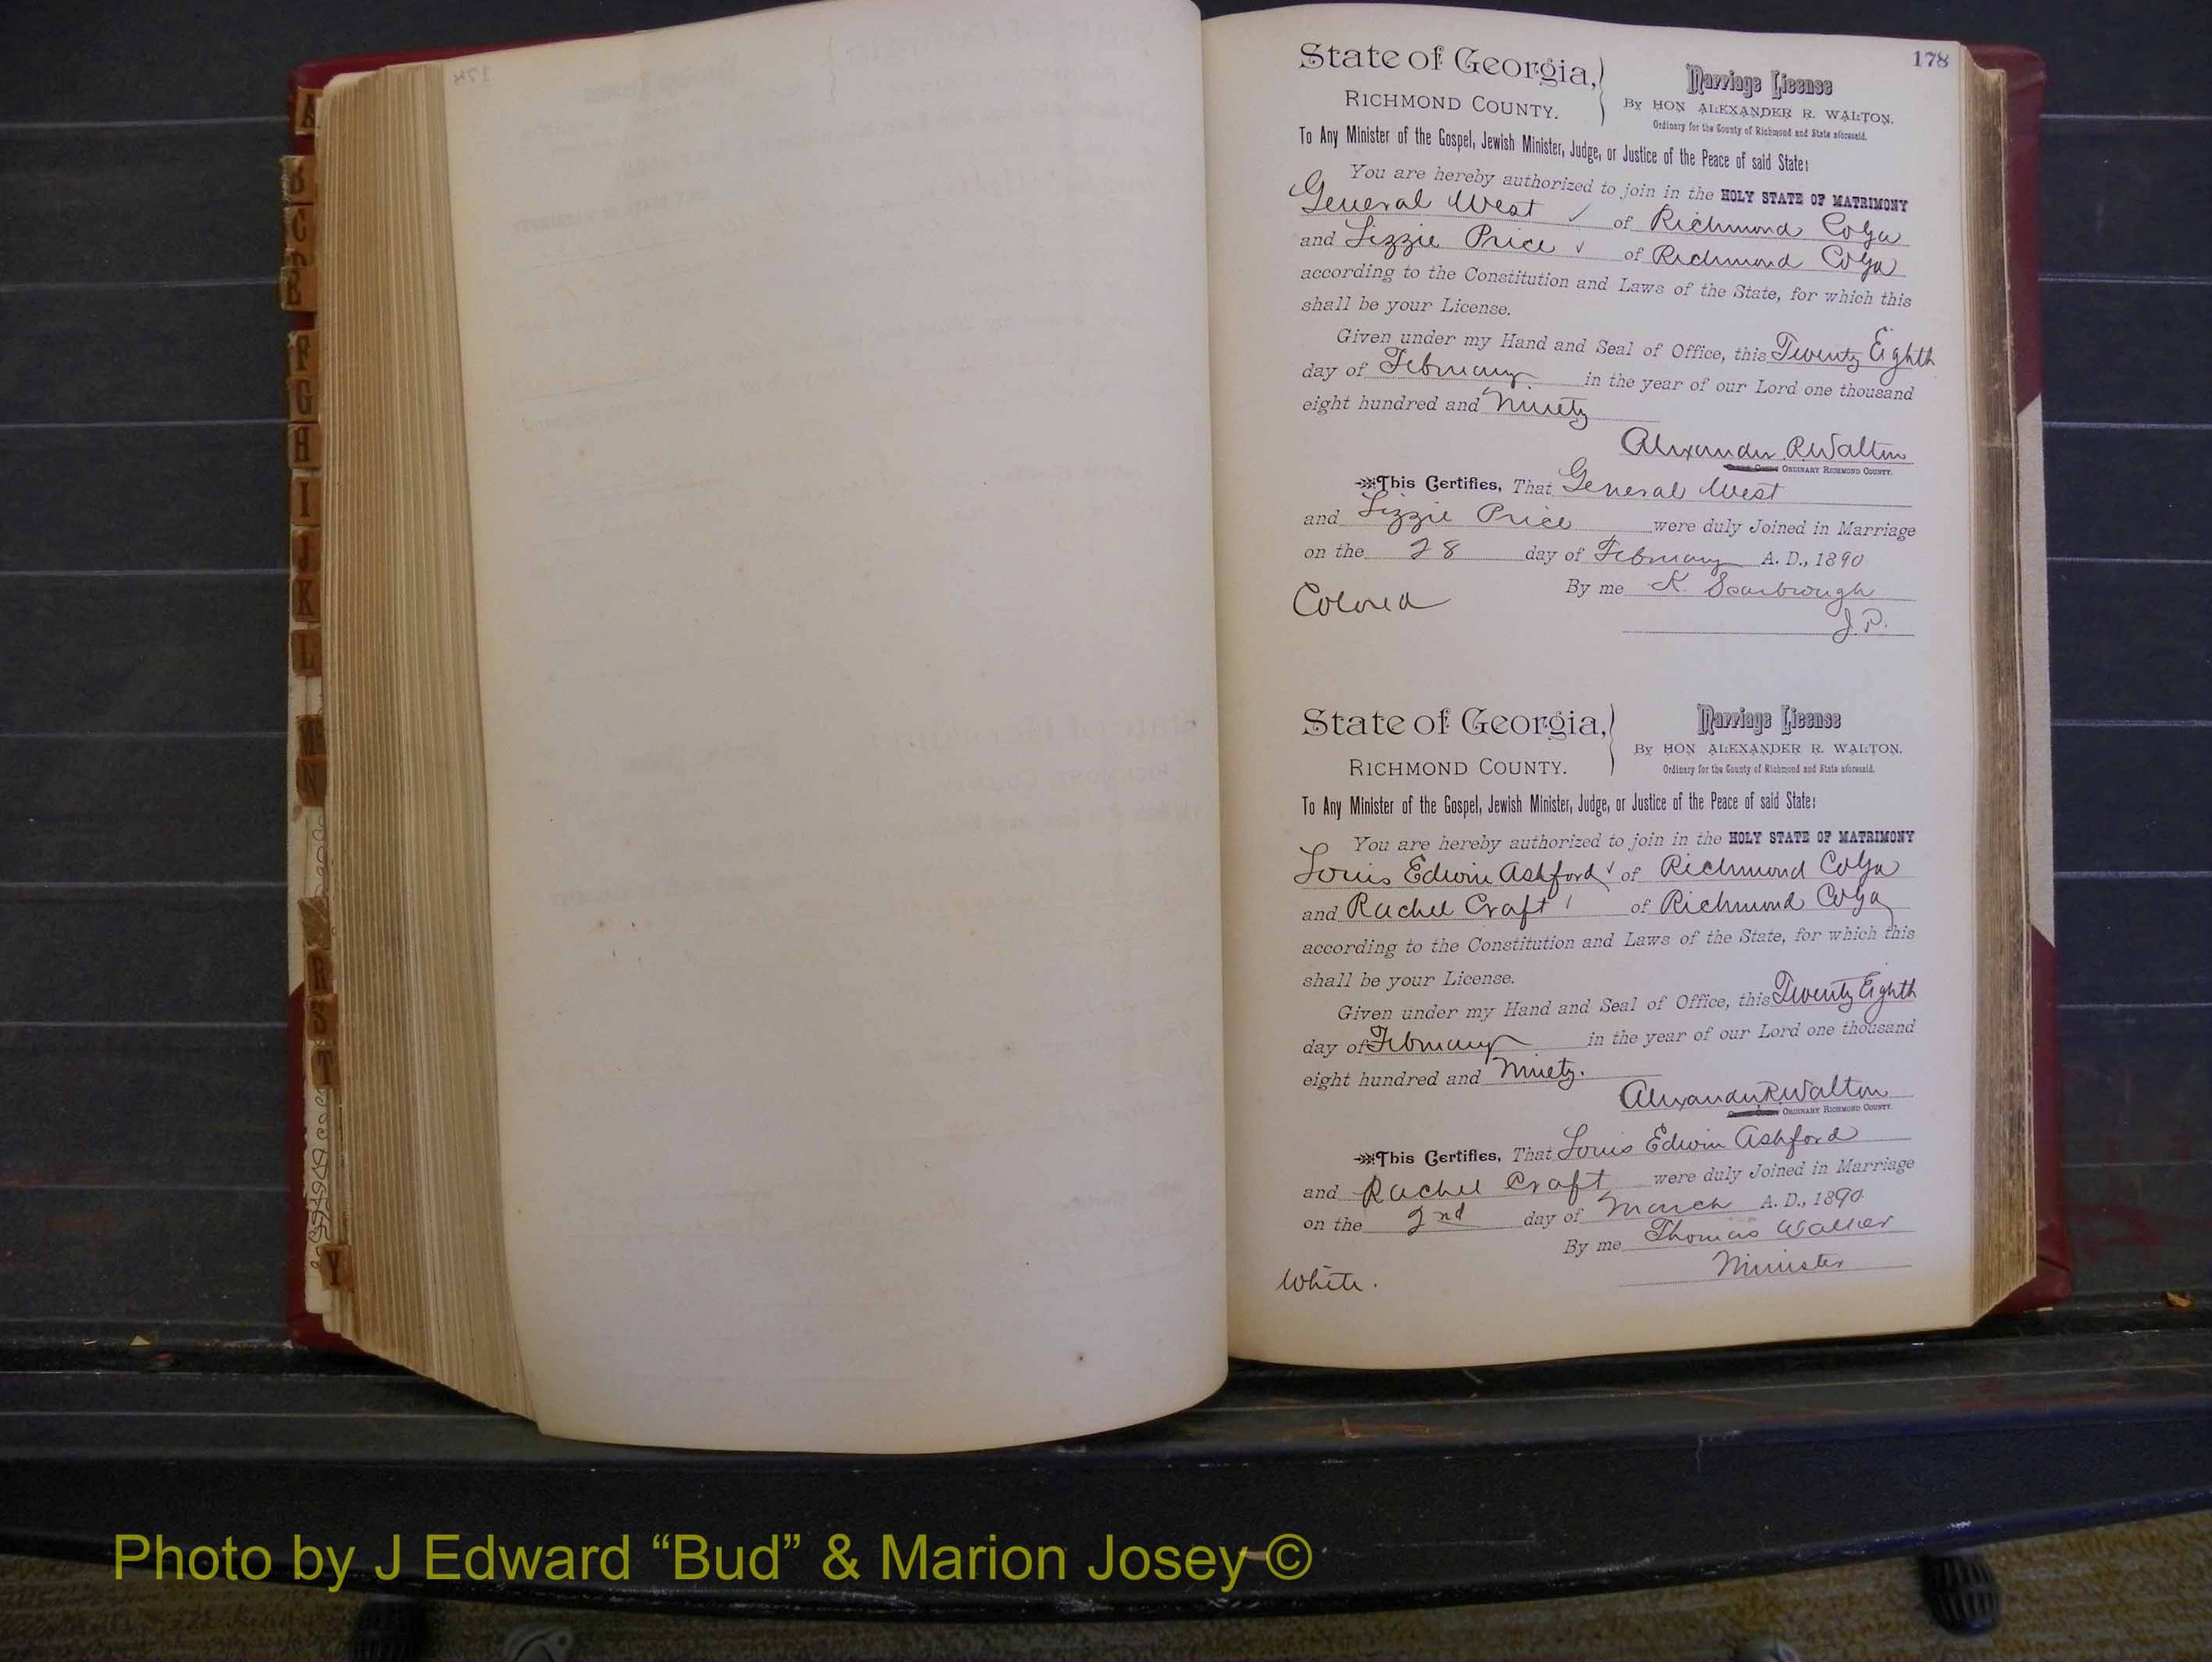 178
State of Georgia,
RICHMOND COUNTY.
Marriage License
By HON ALEXANDER R. WALTON.
Ordinary for the County of Richmond and State aforesaid.
To Any Minister of the Gospel, Jewish Minister, Judge, or Justice of the Peace of said State:
You are hereby authorized to join in the HOLY STATE OF MATRIMONY
General West ✓ of Richmond Co Ga
and Lizzie Price ✓ of Richmond Co Ga
according to the Constitution and Laws of the State, for which this
shall be your License.
Given under my Hand and Seal of Office, this Twenty Eighth
day of February in the year of our Lord one thousand
eight hundred and Ninety
Alexander R Walton
ORDINARY RICHMOND COUNTY.
This Certifies, That General West
and Lizzie Price were duly Joined in Marriage
on the 28 day of February A. D., 1890
By me K. Scarbrough
Colored
J.P.
State of Georgia,
RICHMOND COUNTY.
Marriage License
By HON ALEXANDER R. WALTON.
Ordinary for the County of Richmond and State aforesaid.
To Any Minister of the Gospel, Jewish Minister, Judge, or Justice of the Peace of said State:
You are hereby authorized to join in the HOLY STATE OF MATRIMONY
Louis Edwin Ashford ✓ of Richmond Co Ga
and Rachel Craft of Richmond Co Ga
according to the Constitution and Laws of the State, for which this
shall be your License.
Given under my Hand and Seal of Office, this Twenty Eighth
day of February in the year of our Lord one thousand
eight hundred and Ninety.
Alexander R. Walton
ORDINARY RICHMOND COUNTY.
This Certifies, That Louis Edwin Ashford
and Rachel Craft were duly Joined in Marriage
on the 2nd day of March A. D., 1890
By me Thomas Walker
Minister
White.
A
B
C
D
F
G
H
I
J
K
L
M
N
R
S
T
Y
Photo by J Edward “Bud” & Marion Josey ©